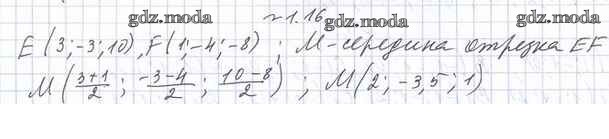 gdz.moda gdz.moda
№ 1.16
E (3; -3; 10), F (1; -4; -8) ; M - середина отрезка EF
M ( \frac{3+1}{2} ; \frac{-3-4}{2} ; \frac{10-8}{2} ) ; M (2; -3,5; 1)
gdz.moda gdz.moda